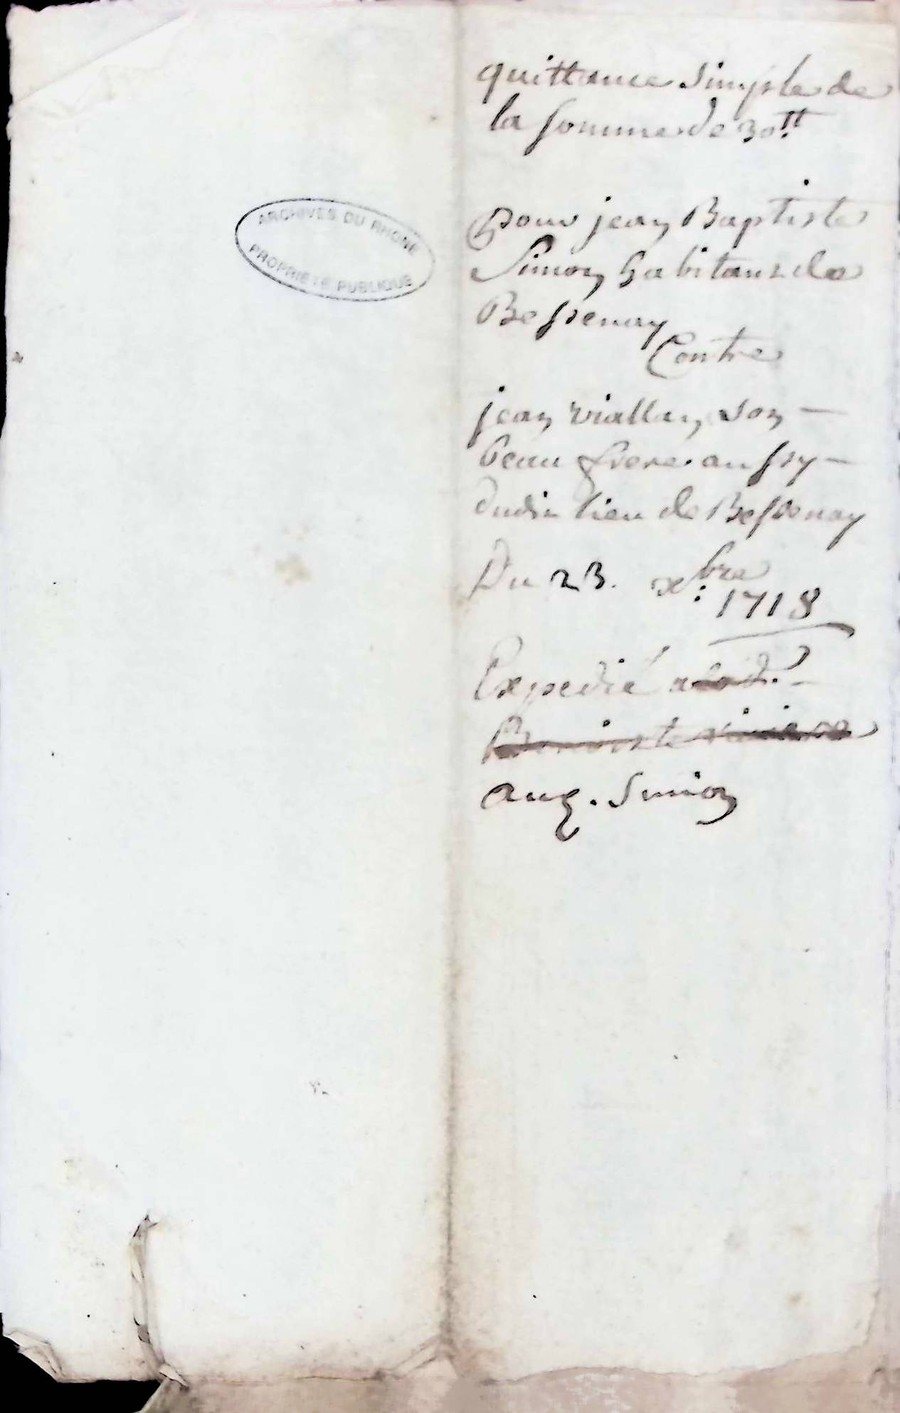 ARCHIVES DU RHONE
PROPRIÉTÉ PUBLIQUE
quittance simple de
la somme de 30tt
pour jean Baptiste
Simon habitant de
Bessenay
Contre
jean viallan son
beau frere aussy
dudit lieu de Bessenay
Du 23. xbre
1718
Expedié
aud. Simon